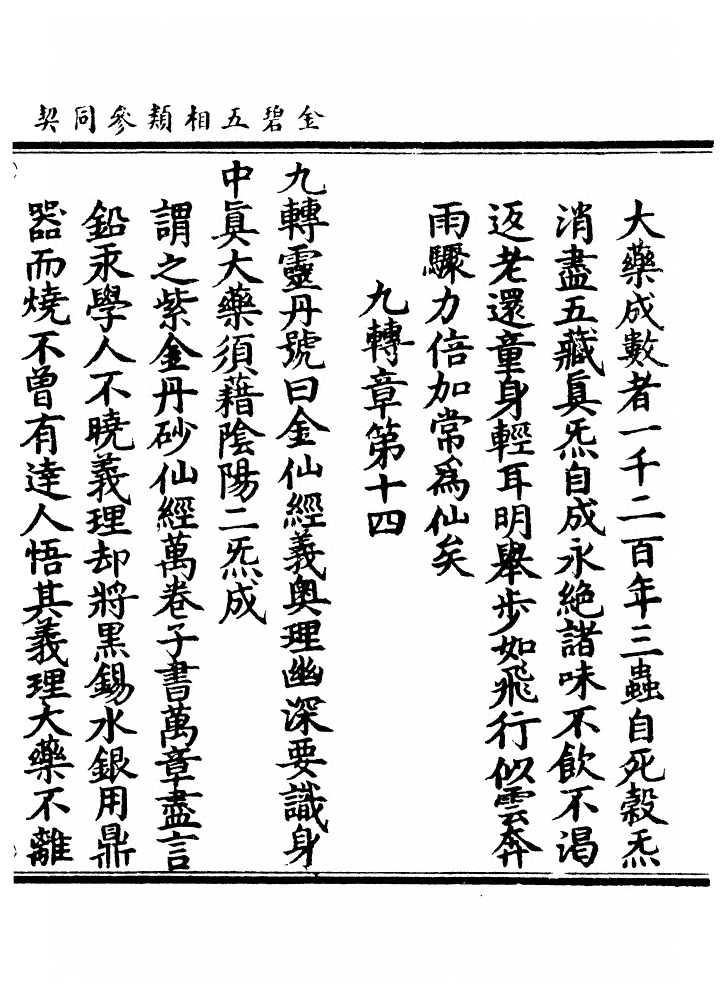 金碧五相類參同契
大藥成數者一千二百年三蟲自死穀炁
消盡五藏真炁自成永絕諸味不飲不渴
返老還童身輕耳明舉步如飛行似雲奔
雨驟力倍加常為仙矣
九轉章第十四
九轉靈丹號曰金仙經義奧理幽深要識身
中真大藥須藉陰陽二炁成
謂之紫金丹砂仙經萬卷子書萬章盡言
鉛汞學人不曉義理却將黑錫水銀用鼎
器而燒不曾有達人悟其義理大藥不離